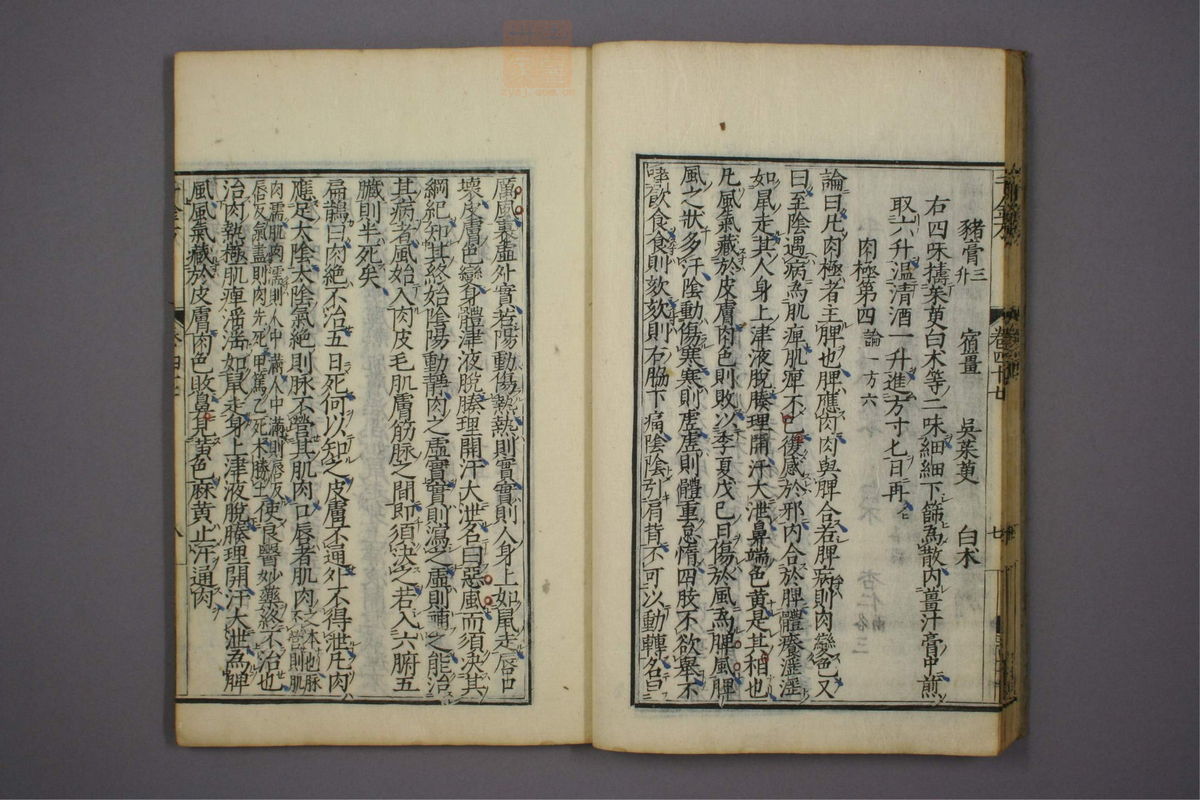 豬膏三升 宿薑 吳茱萸 白朮
右四味擣茱萸白朮等二味細細下篩為散內薑汁膏中煎
取六升温清酒一升進方寸匕日再
肉極第四論一方六
論曰凡肉極者主脾也脾應肉肉與脾合若脾病則肉變色又
曰至陰遇病為肌痺肌痺不已復感於邪內合於脾體癢淫淫
如鼠走其人身上津液脫腠理開汗大泄鼻端色黃是其相也
凡風氣藏於皮膚肉色則敗以季夏戊巳日傷於風為脾風脾
風之狀多汗陰動傷寒寒則虛虛則體重怠惰四肢不欲舉不
嗜飲食食則欬欬則右脇下痛陰陰引肩背不可以動轉名曰
厲風裏虛外實若陽動傷熱熱則實實則人身上如鼠走唇口
壞皮膚色變身體津液脫腠理開汗大泄名曰惡風而須決其
綱紀知其終始陰陽動靜肉之虛實實則瀉之虛則補之能治
其病者風始入肉皮毛肌膚筋脉之間即須決之若入六腑五
臟則半死矣
扁鵲曰肉絕不治五日死何以知之皮膚不通外不得泄凡肉
應足太陰太陰氣絕則脉不營其肌肉口唇者肌肉之本也脉不營則肌
肉濡肌肉濡則人中滿人中滿則唇反
唇反氣盡則肉先死甲篤乙死木勝土使良醫妙藥終不治也
治肉熱極肌痺淫淫如鼠走身上津液脫腠理開汗大泄為脾
風風氣藏於皮膚肉色敗鼻見黃色麻黃止汗通肉